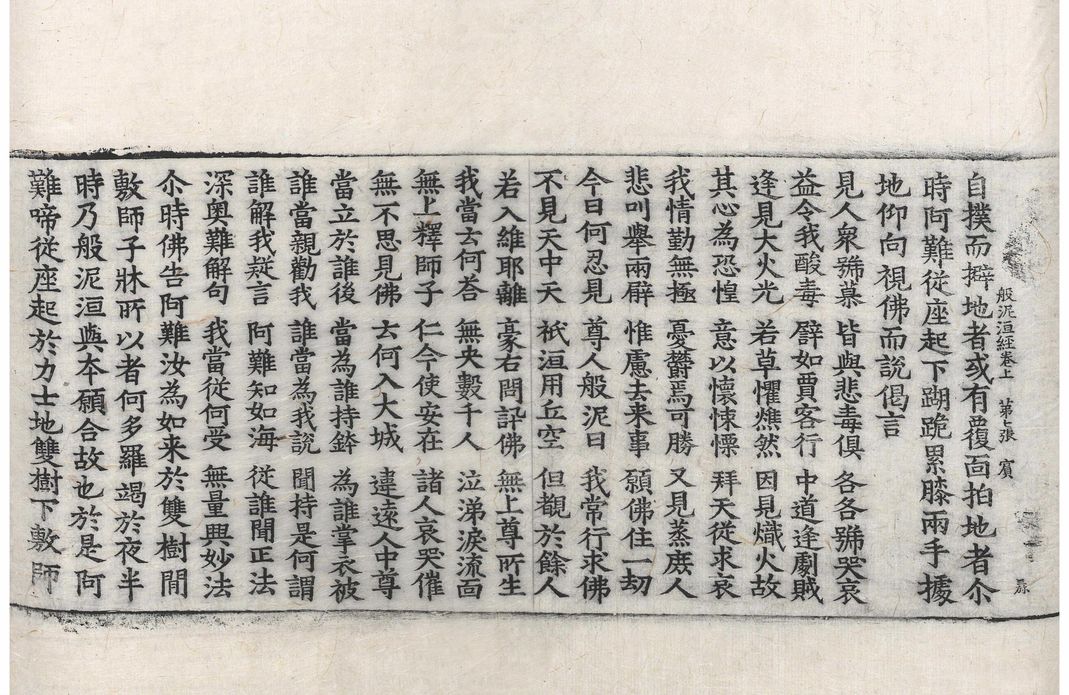 般泥洹經卷上　第七張　賓
自撲而擗地者或有覆面拍地者尒
時阿難從座起下𨄔跪累膝兩手據
地仰向視佛而說偈言
見人衆號慕　皆與悲毒俱　各各號哭哀
益令我酸毒　譬如賈客行　中道逢劇賊
逢見大火光　若草懼燋然　因見熾火故
其心為恐惶　意以懷悚慄　拜天從求哀
我情勤無極　憂欝焉可勝　又見蒸庶人
悲叫舉兩臂　惟慮去来事　願佛住一劫
今日何忍見　尊人般泥曰　我常行求佛
不見天中天　祇洹用丘空　但觀於餘人
若入維耶離　豪右問訊佛　無上尊所生
我當云何荅　無央數千人　泣涕淚流面
無上釋師子　仁今使安在　諸人哀哭催
無不思見佛　云何入大城　違遠人中尊
當立於誰後　當為誰持鉢　為誰掌衣被
誰當親勸我　誰當為我說　聞持是何謂
誰解我疑言　阿難知如海　從誰聞正法
深奥難解句　我當從何受　無量興妙法
尒時佛告阿難汝為如来於雙樹間
敷師子牀所以者何多羅竭於夜半
時乃般泥洹與本願合故也於是阿
難啼從座起於力士地雙樹下敷師